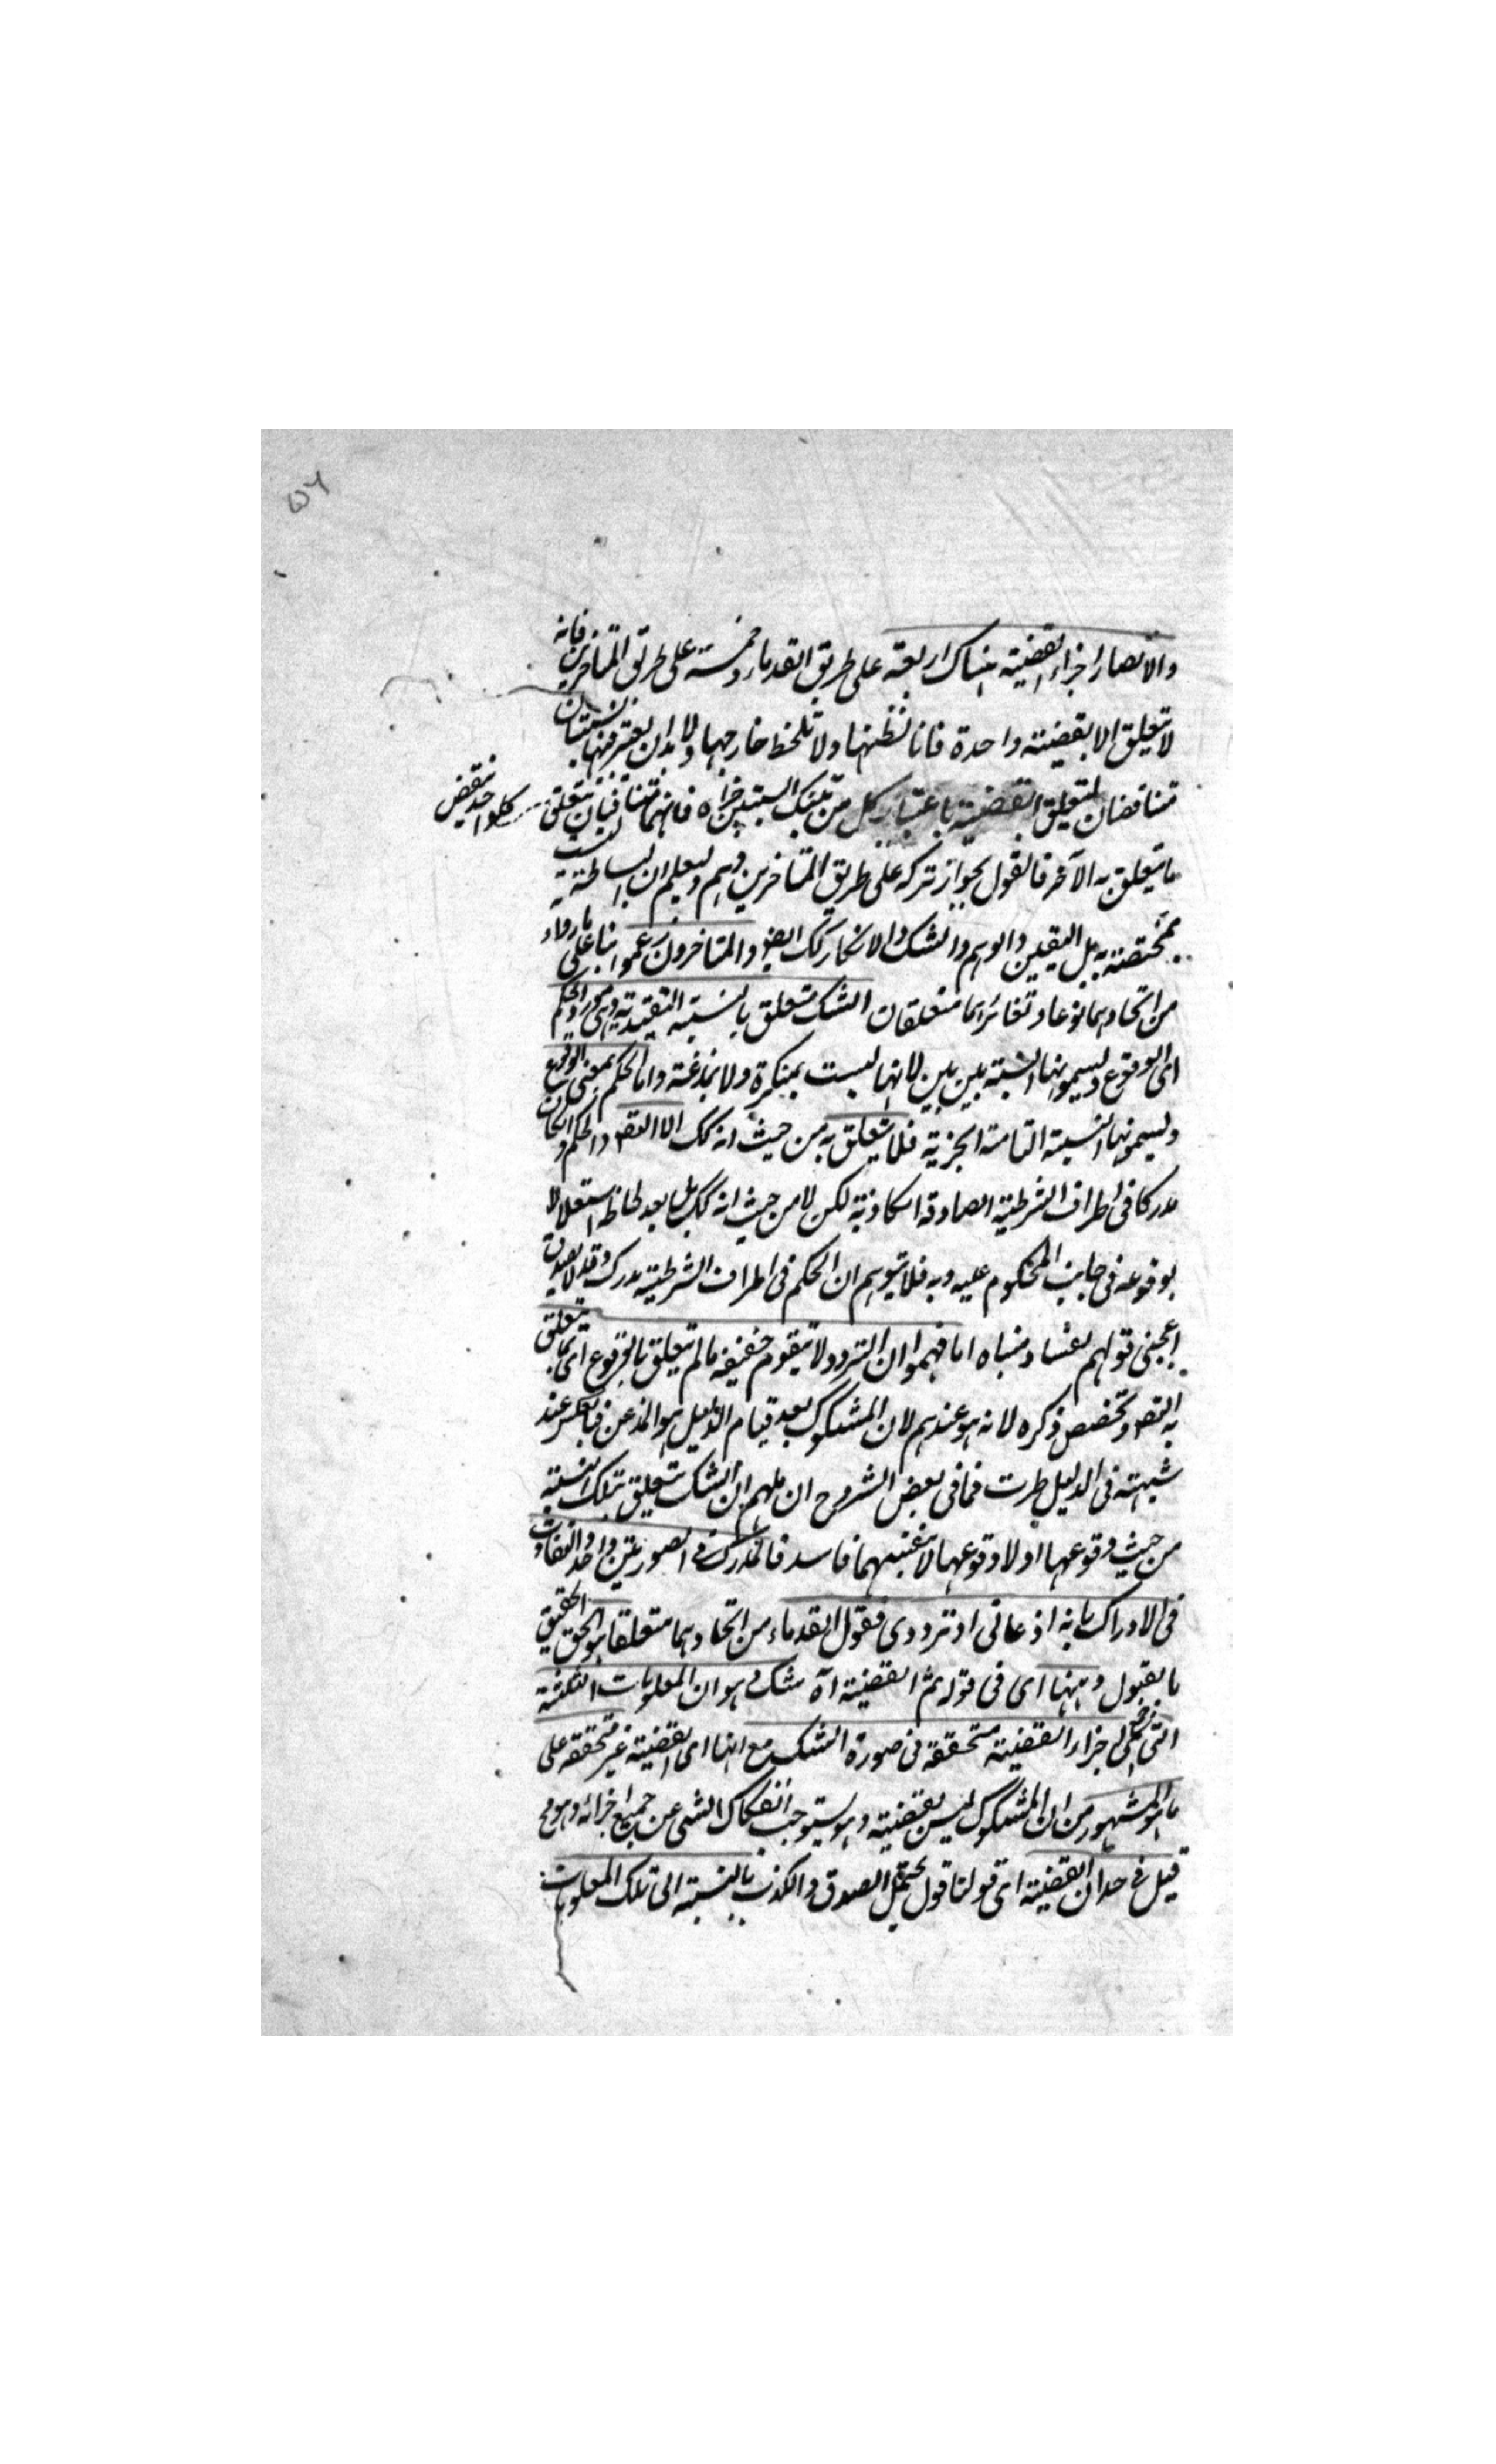 ٥٦
والا لصار اجزاء القضية هناك اربعة على طريق القدماء وخمسة على طريق المتأخرين فانه
لا يتعلق الا بقضية واحدة فانا نظنها ولا نلحظ خارجها ولا بد ان يعتبر فيها نسبتان
متناقضتان لتعلق القضية باعتبار كل من تينك النسبتين جزاه فانهما متنافيان يتعلق
كلواحد بنقيض
ما يتعلق به الآخر فالقول بجواز تركه على طريق المتأخرين وهم وليعلم ان البساطة ليست
بمختصة به بل اليقين والوهم والشك والانكار كذلك ايضا والمتأخرون زعموا بناء على ما رواه
من اتحادهما نوعا وتغائرهما متعلقا ان الشك متعلق بالنسبة التقييدية وهي مورد الحكم
اى الوقوع ويسمونها النسبة بين بين لانها ليست بمنكرة ولا بمذعنة واما الحكم بمعنى الوقوع
ويسمونها النسبة التامة الخبرية فلا يتعلق به من حيث انه كك الا التصديق والحكم وان كان
مدركا فى اطراف الشرطية الصادقة الكاذبة لكن لا من حيث انه كك بل بعد لحاظه استقلالا
بوقوعه فى جانب المحكوم عليه وبه فلا يتوهم ان الحكم فى اطراف الشرطية مدرك وقد لا يصدق
اعجبنى قولهم لفساد مبناه اما فهموا ان التردد لا يتقوم حقيقة ما لم يتعلق بالوقوع اى بما يتعلق
به التصديق وتخصيص ذكره لانه هو عندهم لان المشكوك بعد قيام الدليل هو المذعن وبالعكس عند
شبهة فى الدليل طرت فما فى بعض الشروح ان ملهم ان الشك يتعلق بتلك النسبة
من حيث وقوعها او لا وقوعها لا بنفسيهما فاسد فالمدرك فى الصورتين واحد والتفاوت
فى الادراك بانه اذعانى او ترددى فقول القدماء من اتحادهما متعلقا هو الحق الحقيق
بالقبول وههنا اى فى قوله ثم القضية آه شك وهو ان المعلومات الثلثة
التى هى اجزاء القضية متحققة فى صورة الشك مع انها اى القضية غير متحققة على
ما هو المشهور من ان المشكوك ليس بقضية وهو يستوجب انفكاك الشى عن جميع اجزائه وهو مح
قيل فى حله ان القضية اى قولنا قول يحتمل الصدق والكذب بالنسبة الى تلك المعلومات